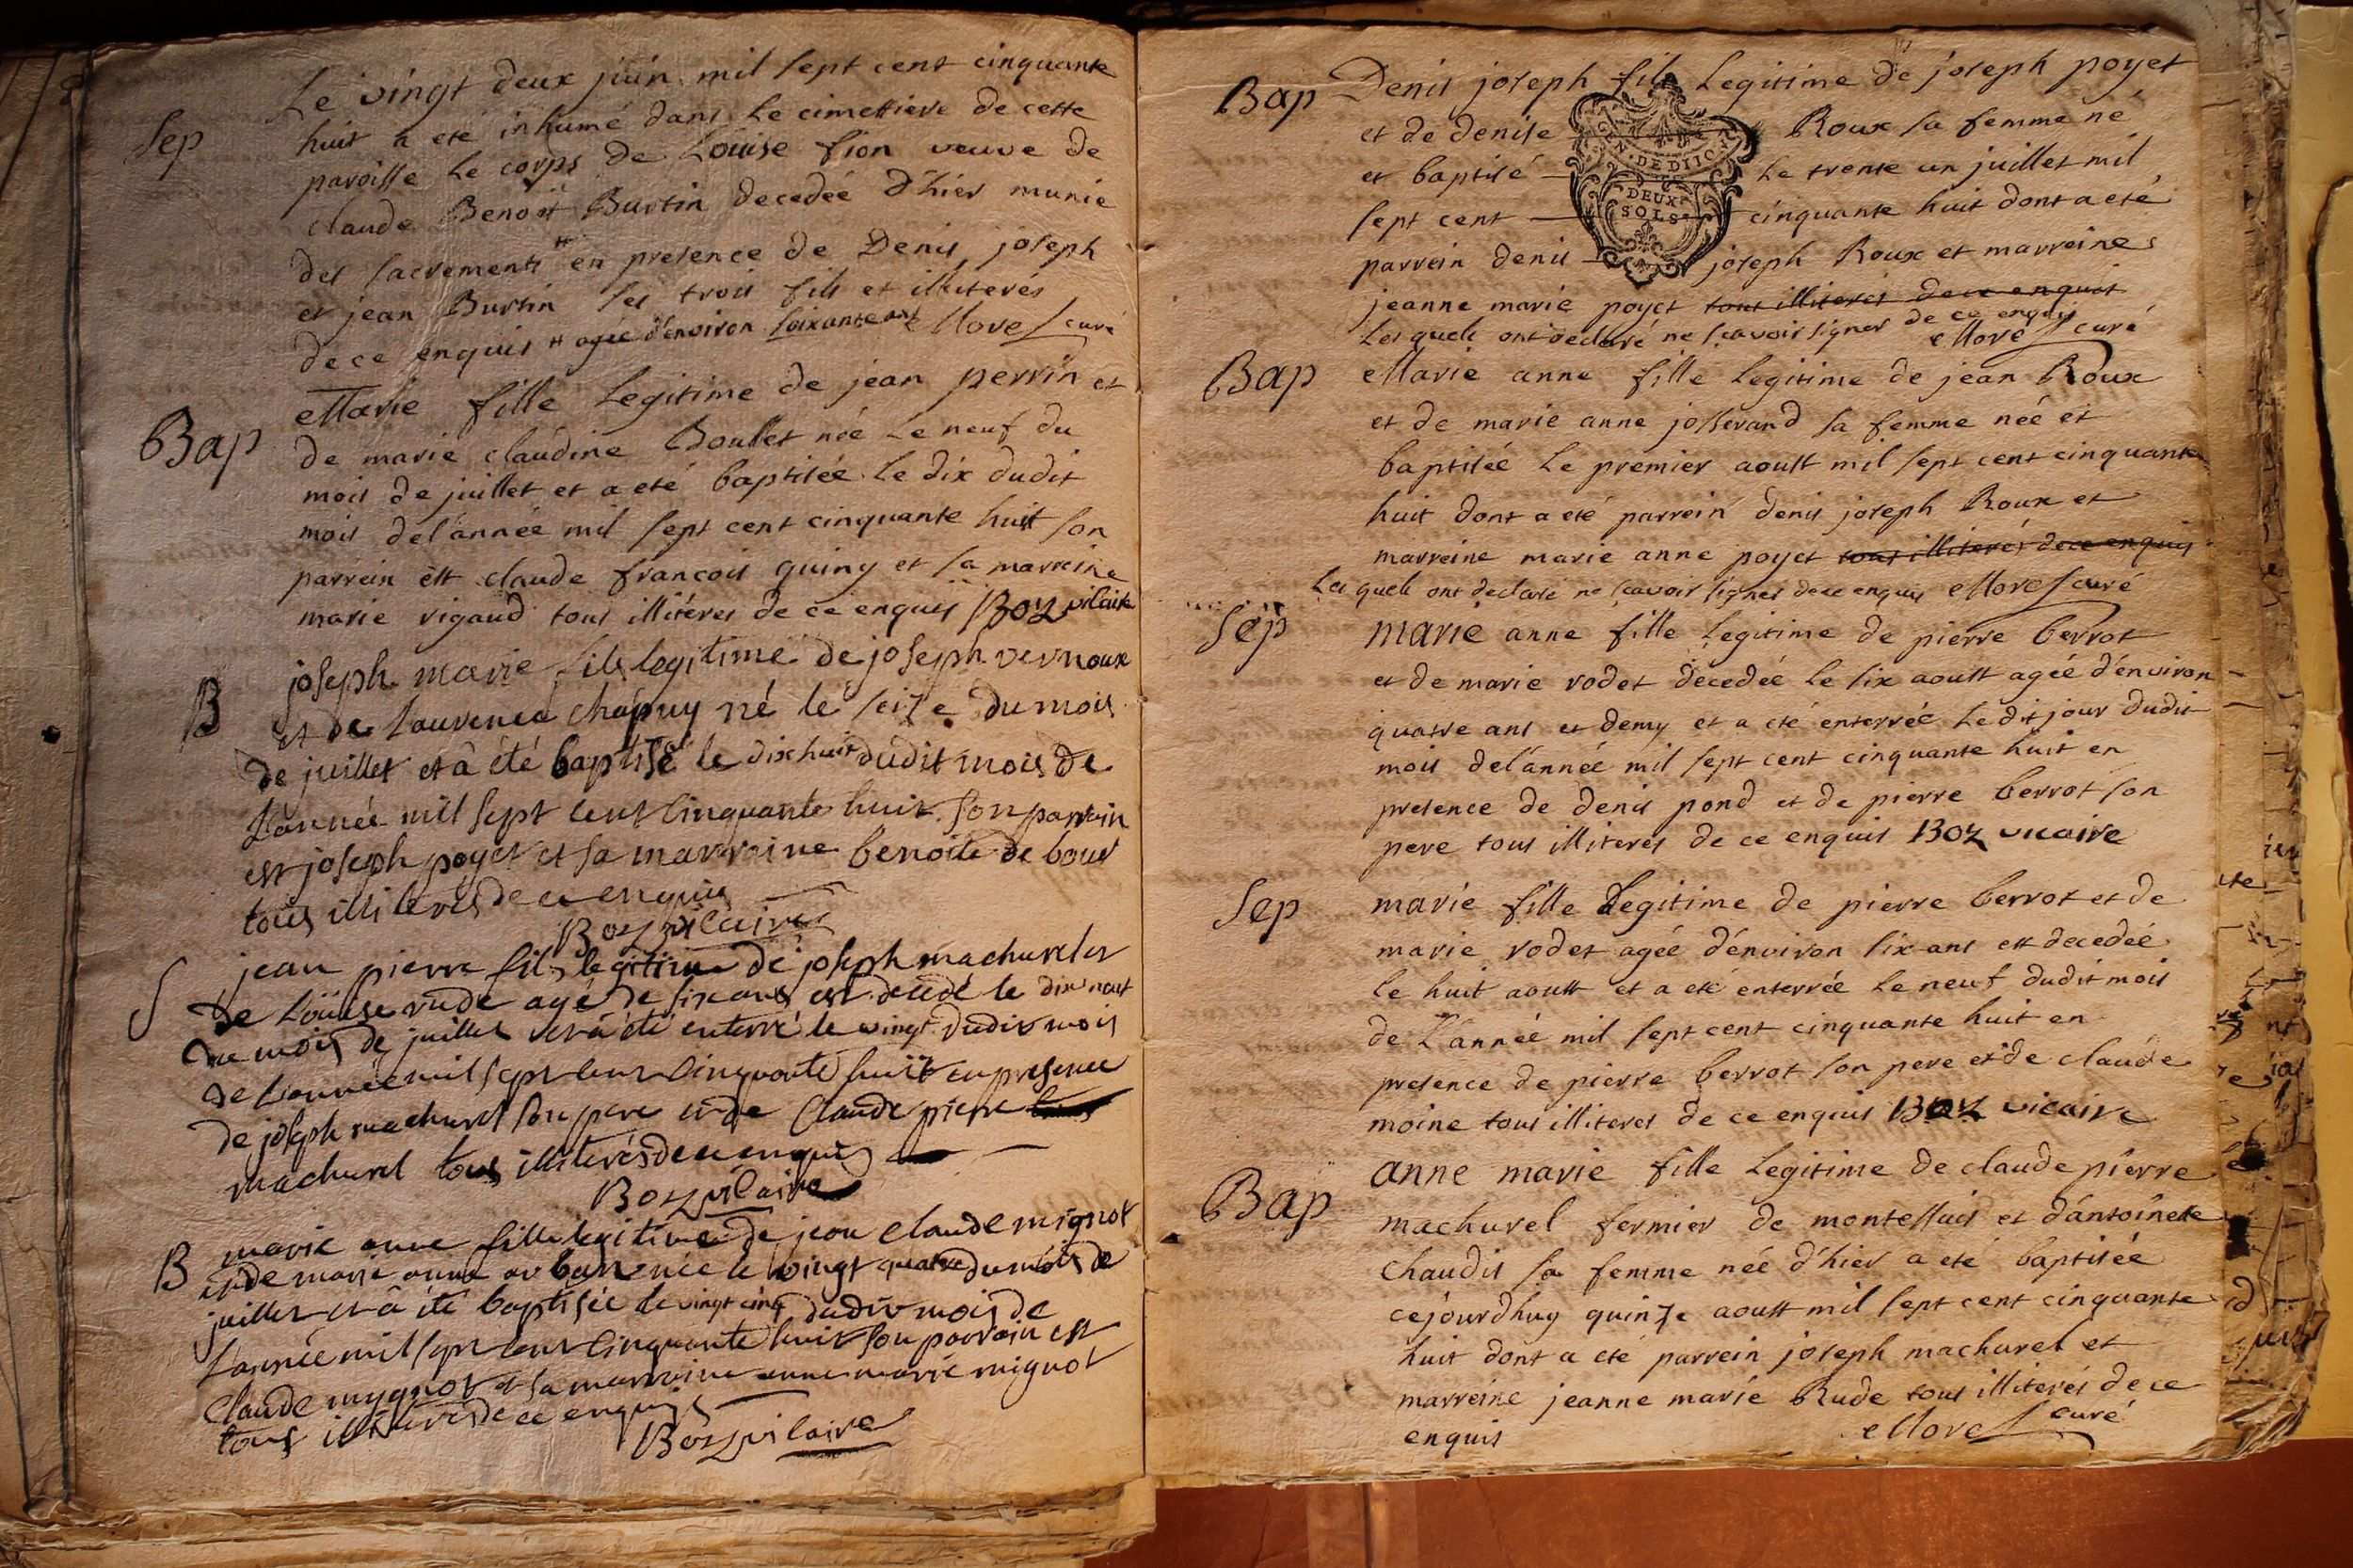 Le vingt deux juin mil sept cent cinquante
Sep
huit a eté inhumé dans le cimettiere de cette
paroisse le corps de Loüise fion veuve de
claude Benoit Burtin decedée d'hier munie
des sacrements # en presence de Denis, joseph
et jean Burtin ses trois fils et illiterés
de ce enquis # agée d'environ soixante ans Morel curé
Bap
Marie fille legitime de jean perrin et
de marie claudine Boullet née le neuf du
mois de juillet et a eté baptisée le dix dudit
mois de l'année mil sept cent cinquante huit son
parrein est claude francois guiny et sa marreine
marie rigaud tous illiteres de ce enquis Boz vicaire
B
joseph marie fils legitime de joseph vernoux
et de Laurence chapuy né le seize du mois
de juillet et à été baptisé le dix huit dudit mois de
L'année mil sept cent cinquante huit son parrain
est joseph poyet et sa marraine benoite de bour
tous illiterés de ce enquis
Boz vicaire
S
jean pierre fils legitime de joseph machurel et
de Loüise rude agé de six ans est decédé le dix neuf
du mois de juillet et à été enterré le vingt dudit mois
de L'année mil sept cent cinquante huit en presence
de joseph machurel son pere et de Claude pierre
machurel tous illiterés de ce enquis
Boz vicaire
B
marie anne fille legitime de jean claude mignot
et de marie anne née le vingt quatre du mois de
juillet et à été baptisée le vingt cinq dudit mois de
L'année mil sept cent cinquante huit son parrain est
Claude mygnot et sa marraine anne marie mignot
tous illiterés de ce enquis
Boz vicaire
Bap
Denis joseph fils Legitime de joseph poyet
et de denise Roux sa femme né
et baptisé le trente un juillet mil
sept cent cinquante huit dont a eté
parrein denis joseph Roux et marreine
jeanne marie poyet tous illiteres de ce enquis
Lesquels ont declaré ne scavoir signer de ce enquis Morel curé
GEN. DE DIJON
DEUX
SOLS
Bap
Marie anne fille legitime de jean Roux
et de marie anne josserand sa femme née et
baptisée le premier aoust mil sept cent cinquante
huit dont a eté parrein denis joseph Roux et
marreine marie anne poyet tous illiterés de ce enquis
Lesquels ont declaré ne scavoir signer de ce enquis Morel curé
Sep
marie anne fille legitime de pierre berrot
et de marie rodet decedée le six aoust agée d'environ
quatre ans et demy et a eté enterrée ledit jour dudit
mois de l'année mil sept cent cinquante huit en
presence de denis pond et de pierre berrot son
pere tous illiterés de ce enquis Boz vicaire
Sep
marie fille legitime de pierre berrot et de
marie rodet agée d'environ six ans est decedée
le huit aoust et a eté enterrée le neuf dudit mois
de L'année mil sept cent cinquante huit en
presence de pierre berrot son pere et de claude
moine tous illiteres de ce enquis Boz vicaire
Bap
anne marie fille legitime de claude pierre
machurel fermier de montessuis et d'antoinete
chaudis sa femme née d'hier a eté baptisée
cejourdhuy quinze aoust mil sept cent cinquante
huit dont a eté parrein joseph machurel et
marreine jeanne marie Rude tous illiterés de ce
enquis Morel curé